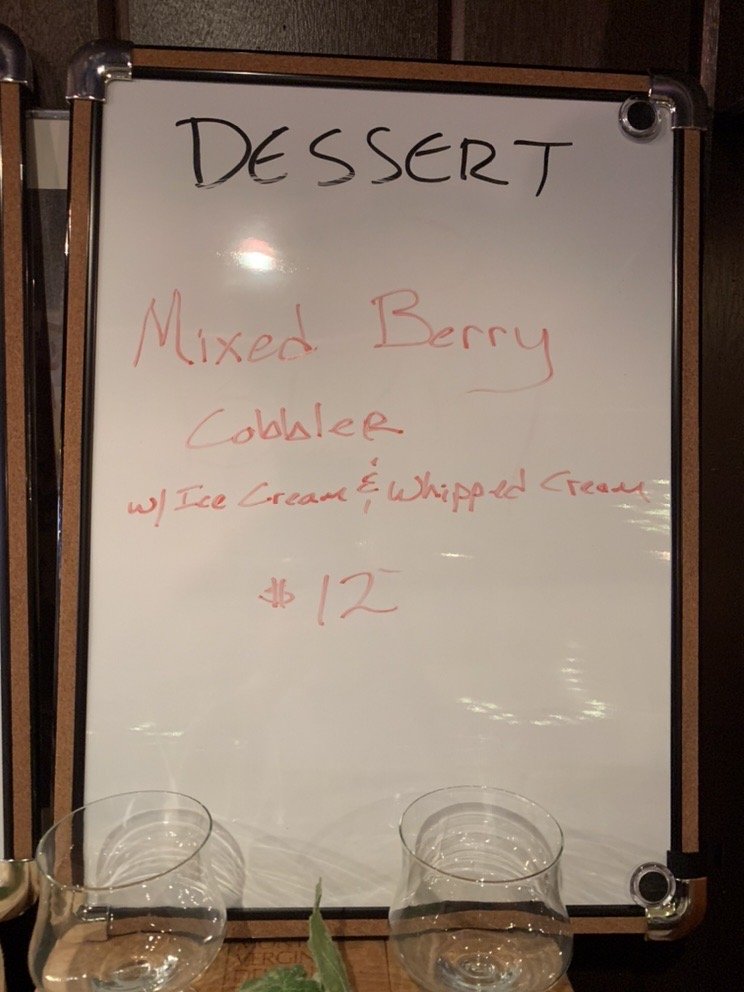 DESSERT
Mixed Berry
Cobbler
w/ Ice Cream & Whipped Cream
$12